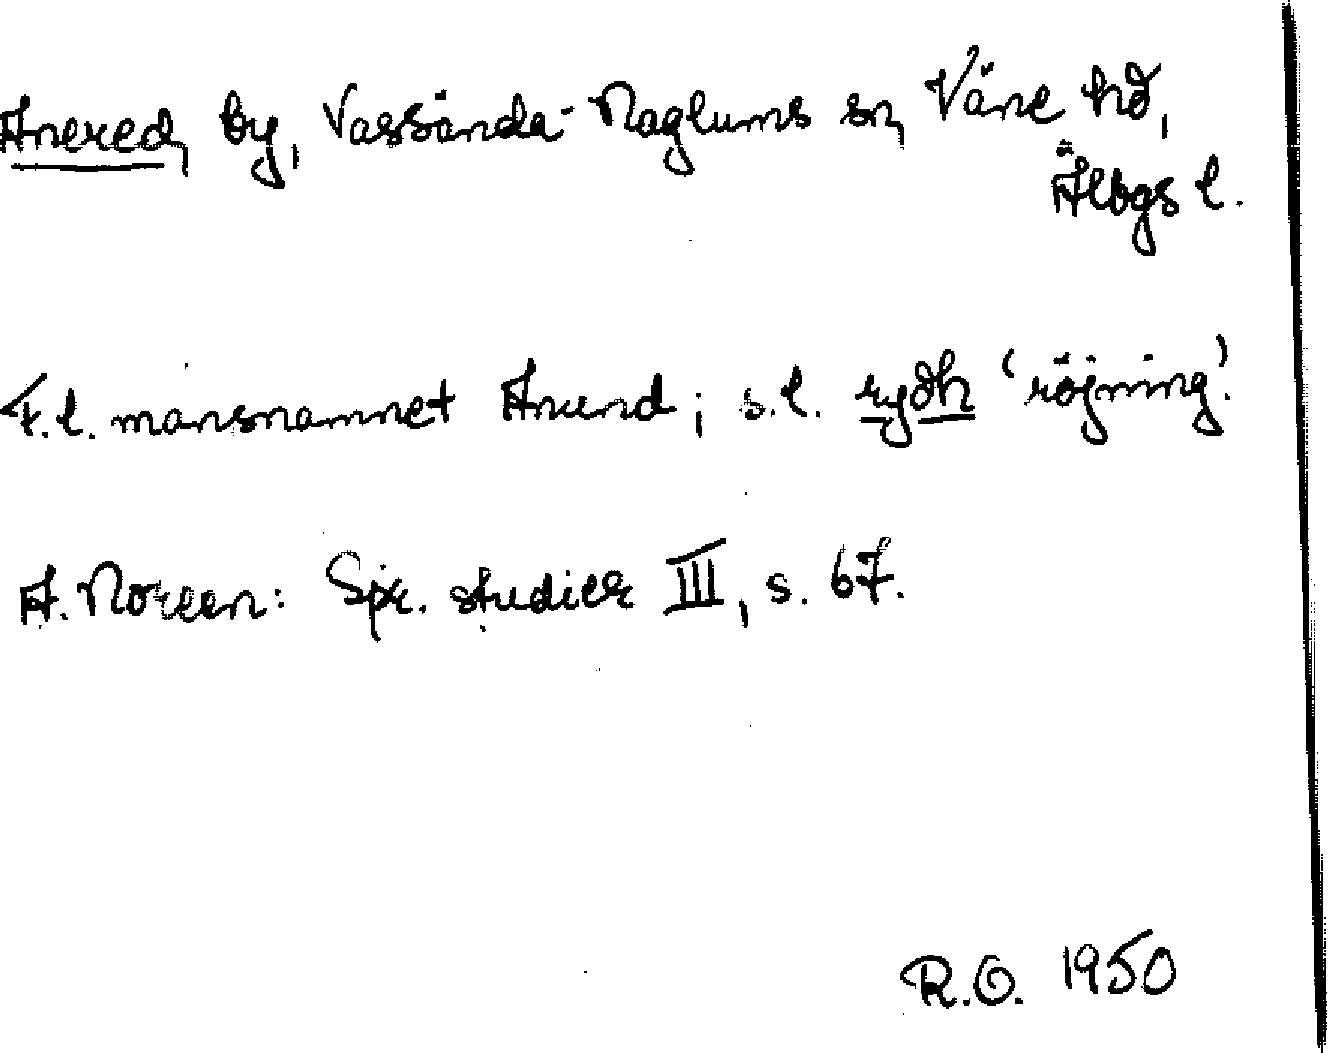 Anered, by, Vassända-Naglums sn, Väne hd,
Älbgs l.
F.l. mansnamnet Anund; s.l. rydh 'röjning'.
A. Noreen: Spr. studier III, s. 67.
R.O. 1950